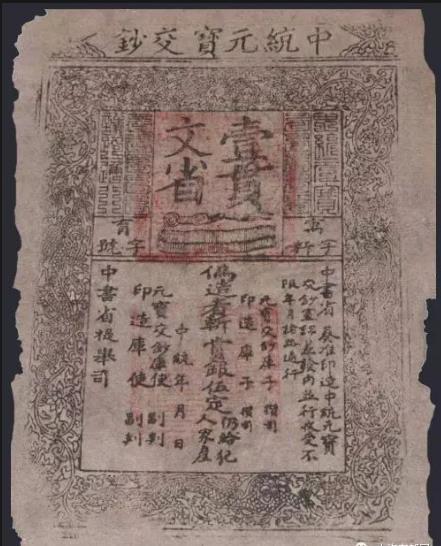 中統元寶交鈔
壹貫
文省
字料
字號
中書省奏准印造中統元寶
交鈔宣課差發內並行收受不
限年月諸路通行
元寶交鈔庫子 攢司
印造庫子 攢司
偽造者斬賞銀伍定仍給犯
人家產
中統 年 月 日
元寶交鈔庫使 副判
印造庫使 副判
中書省提舉司